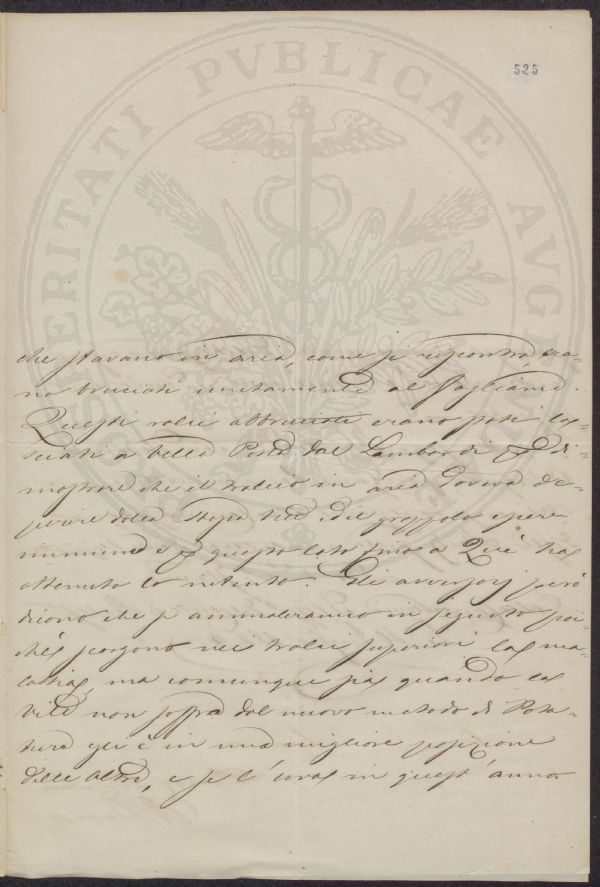 525
PROSPERITATI PVBLICAE AVGENDAE
che stavano in aria, come si riscontrò era-
no bruciati unitamente al fogliame.
Questi tralci abbruciati erano stati las-
sciati a bella Posta dal Lambardi p di-
mostrare che il tralcio in aria doveva de-
perire dalla stessa ed il grappolo essere
immune, e p questo lato fino a Qui ha
ottenuto lo intento. Gli avversarj però
dicono che si ammaleranno in seguito poi-
chè scorgono nei tralci superiori la ma-
lattia, ma comunque sia quando la
vite non soffra dal nuovo metodo di Pota-
tura gli è in una migliore posizione
delle altre, e se l'uva in quest'anno